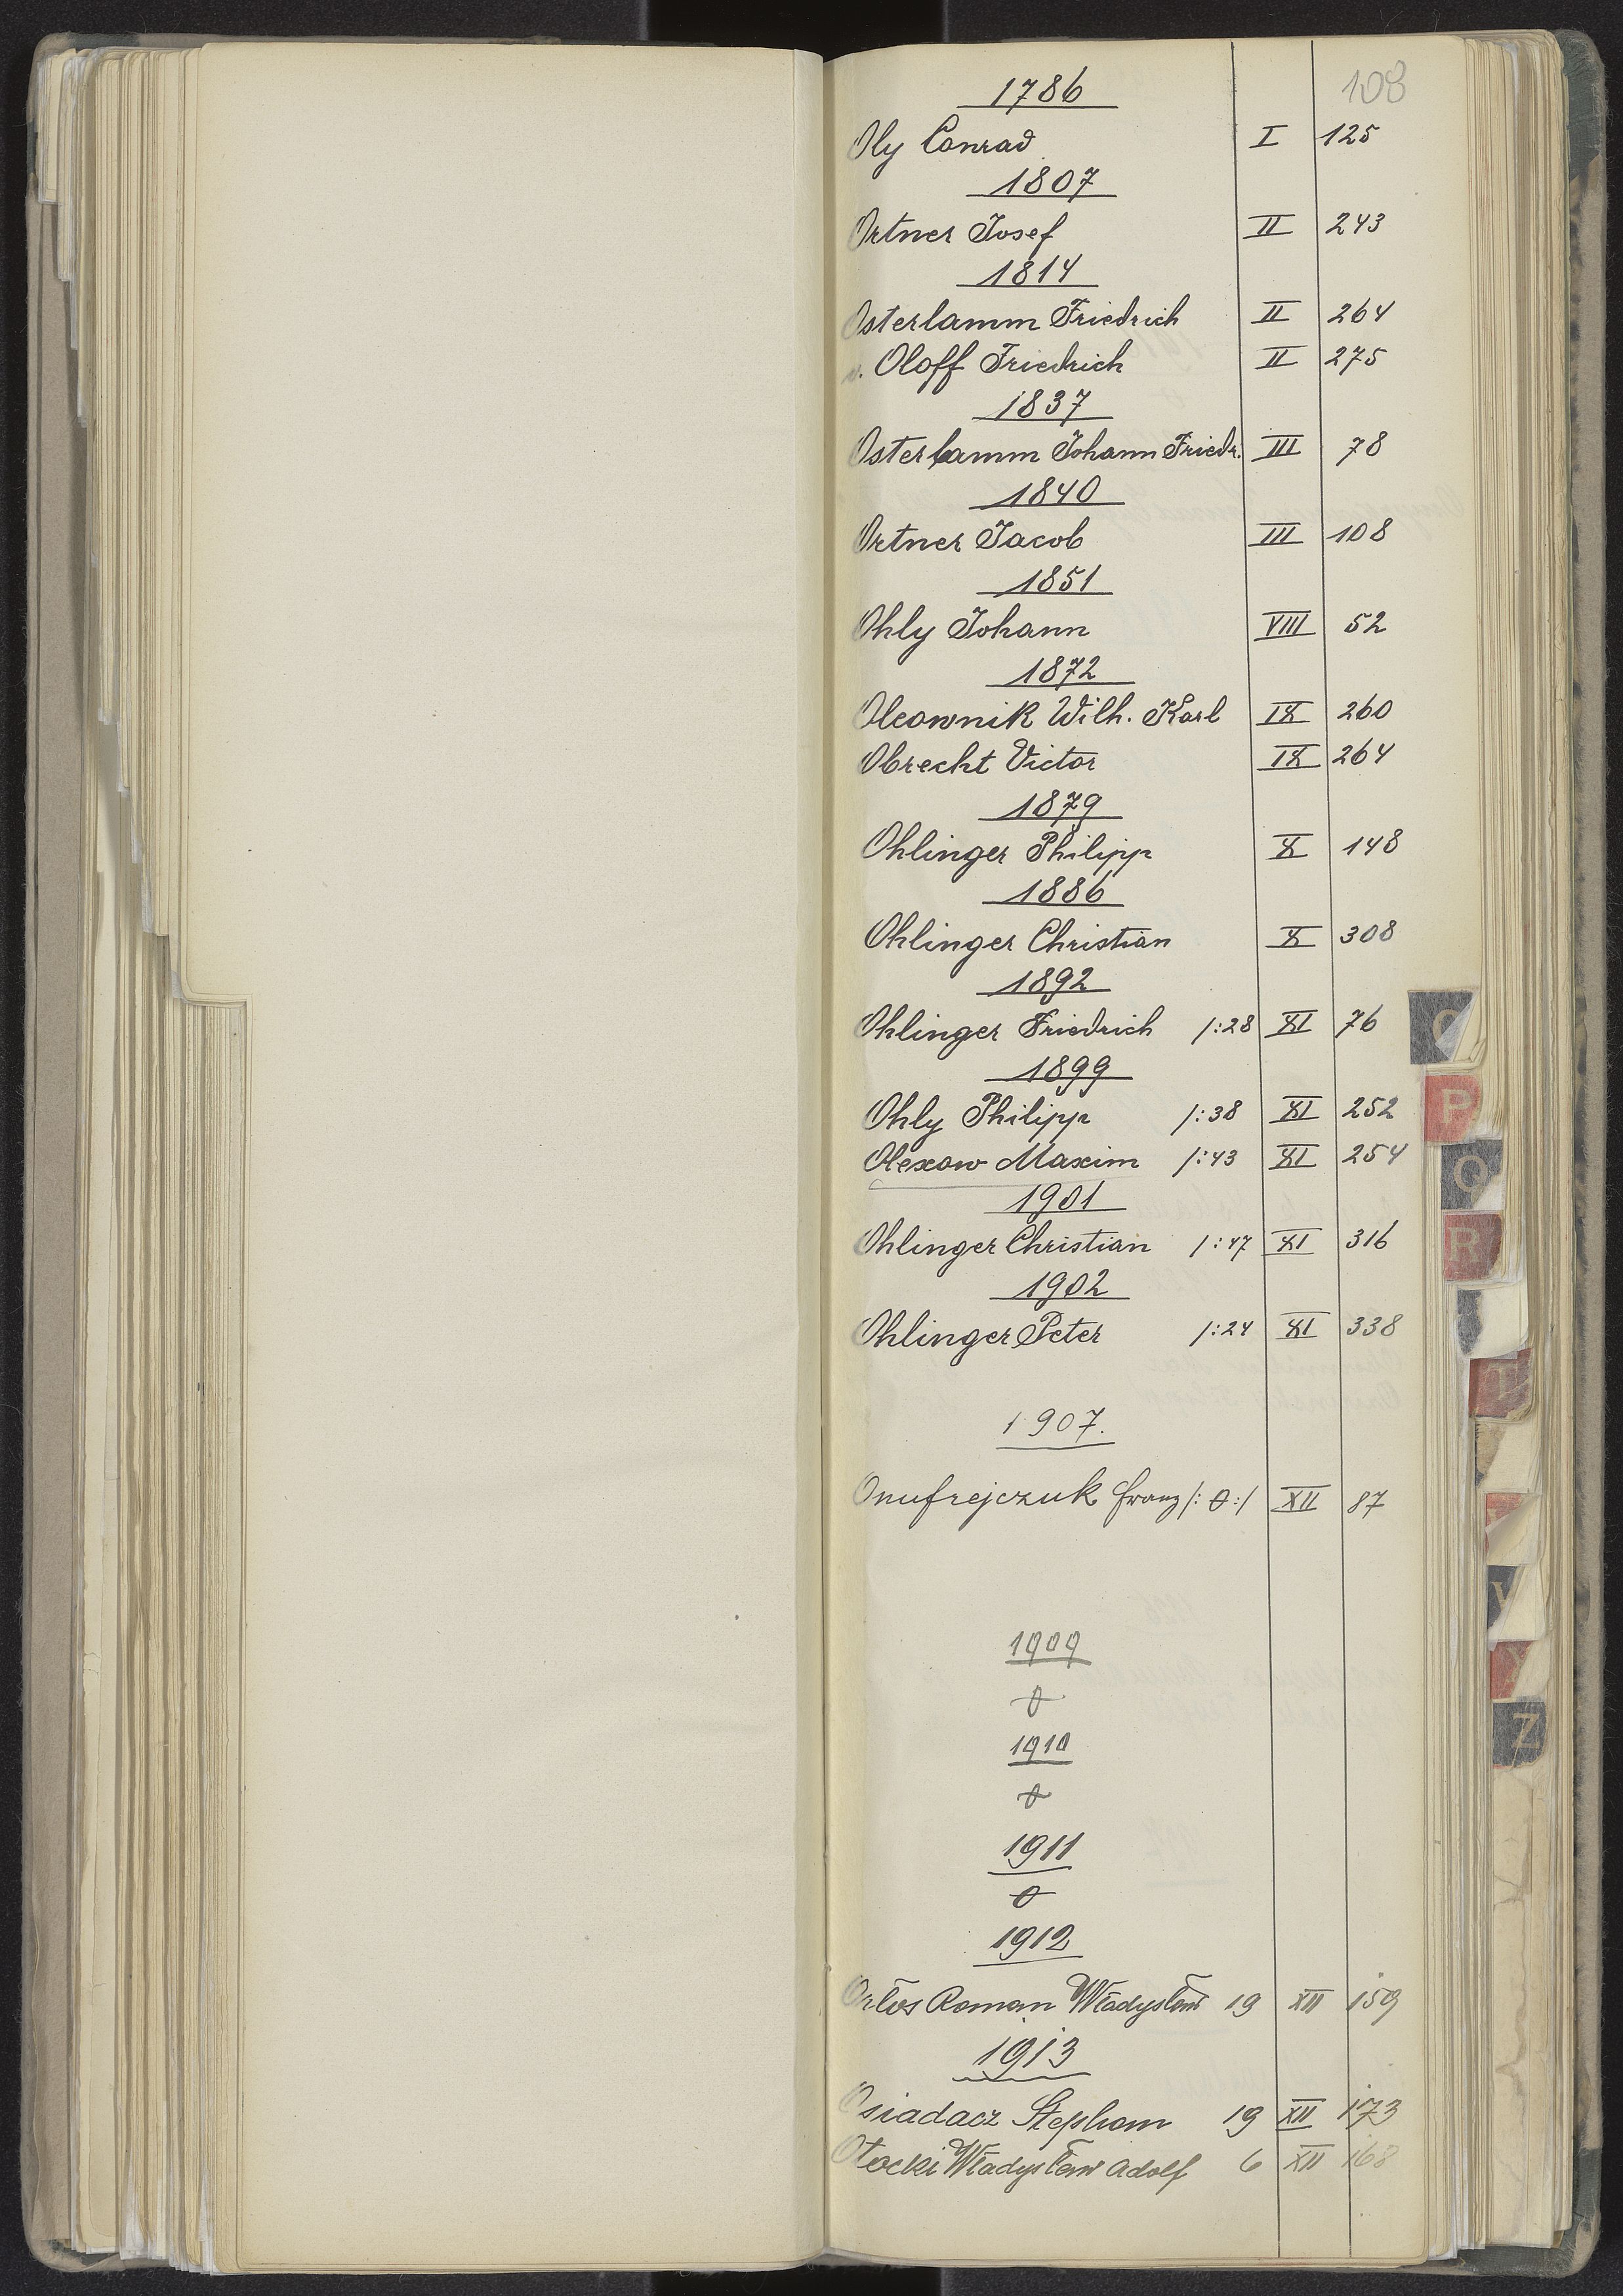 108
1786
Oly Conrad I 125
1807
Ortner Josef II 243
1814
Osterlamm Friedrich II 264
v. Oloff Friedrich II 275
1837
Osterlamm Johann Friedr. III 78
1840
Ortner Jacob III 108
1851
Ohly Johann VIII 52
1872
Oleownik Wilh. Karl IX 260
Obrecht Victor IX 264
1879
Ohlinger Philipp X 148
1886
Ohlinger Christian X 308
1892
Ohlinger Friedrich /:28 XI 76
1899
Ohly Philipp /:38 XI 252
Olexow Maxim /:43 XI 254
1901
Ohlinger Christian /:47 XI 316
1902
Ohlinger Peter /:24 XI 338
1907.
Onufrejczuk Franz /: 0 :/ XII 87
1909
0
1910
0
1911
0
1912
Orłos Roman Władysław 19 XII 159
1913
Osiadacz Stephan 19 XII 173
Otocki Władysław Adolf 6 XII 168
O
P
Q
R
T
V
Z